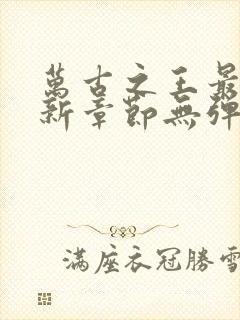 萬古之王最
新章節無彈
滿座衣冠勝雪